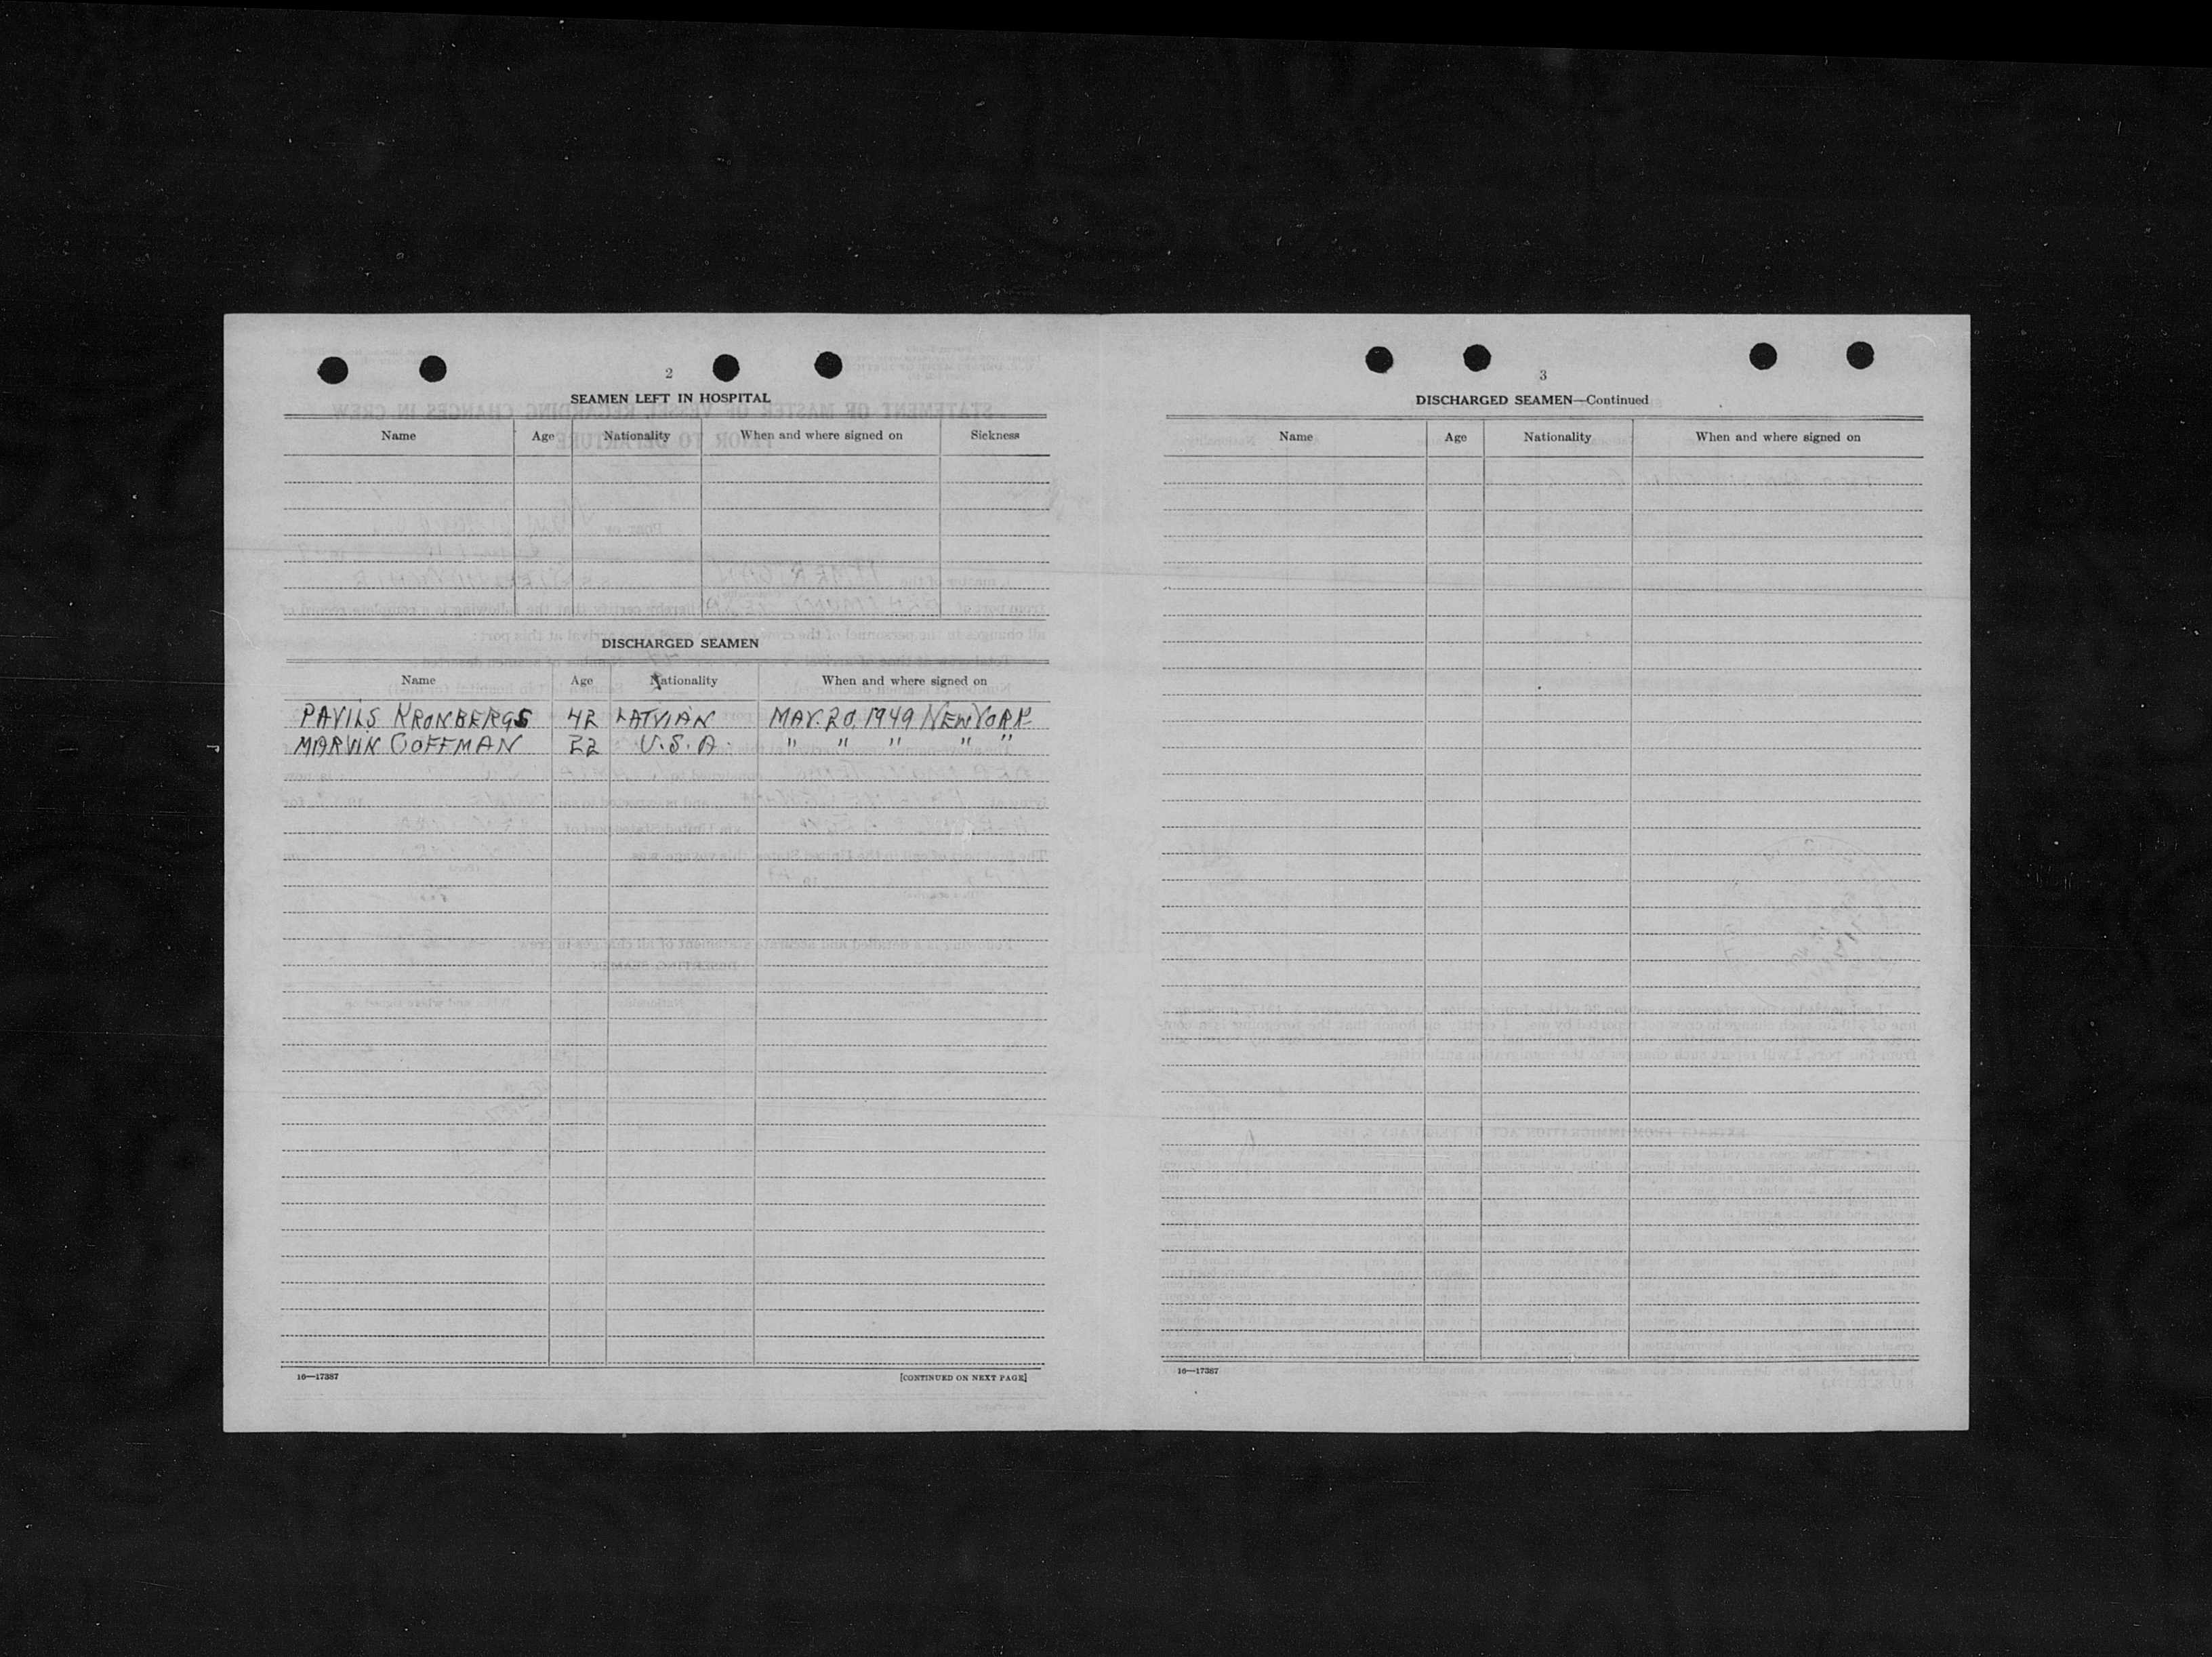 2
SEAMEN LEFT IN HOSPITAL
Name Age Nationality When and where signed on Sickness
DISCHARGED SEAMEN
Name Age Nationality When and where signed on
PAVILS KRONBERGS 42 LATVIAN MAY. 20, 1949 NEW YORK
MARVIN COFFMAN 22 U.S.A. " " " " "
16—17387 [CONTINUED ON NEXT PAGE]
3
DISCHARGED SEAMEN—Continued
Name Age Nationality When and where signed on
16—17387